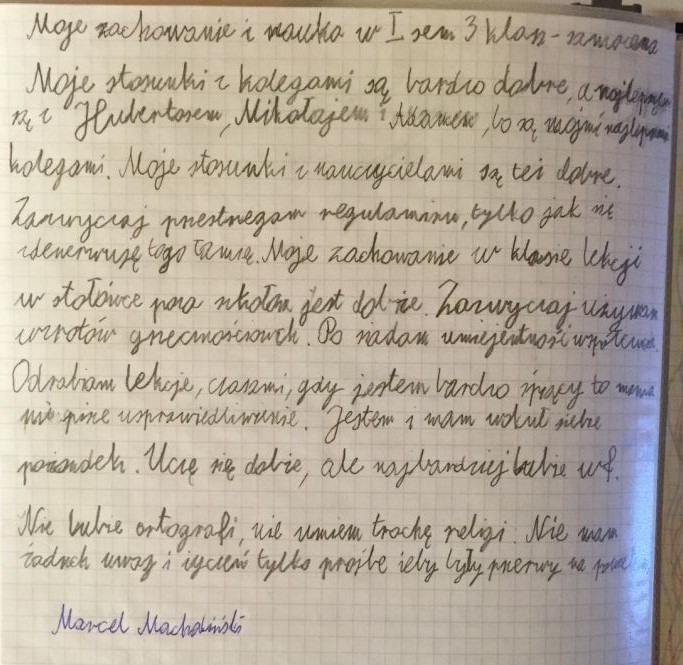 Moje zachowanie i nauka w I sem 3 klas - samocena
Moje stosunki z kolegami są bardzo dobre, a najlepsze
są z Hubertosem, Mikołajem i Adamem, bo są mojmi najlepszmi
kolegami. Moje stosunki z nauczycielami są też dobre.
Zazwyczaj przestrzegam regulaminu, tylko jak się
zdenerwuję togo łamię. Moje zachowanie w klasie lekcji
w stołówce poza szkołom jest dobrze. Zazwyczaj używam
wzrotów grzecznościowch. Po siadam umiejentności
Odrabiam lekcje, czaszmi, gdy jestem bardzo śpiący to mama
mi pisze usprawiedliwienie. Jestem i mam wokuł siebie
pożondek. Uczę się dobże, ale najbardziej lubie wf.
Nie lubie ortografi, nie umiem trochę religi. Nie mam
żadnch uwag i życzeń tylko prośbe żeby były przerwy na
Marcel